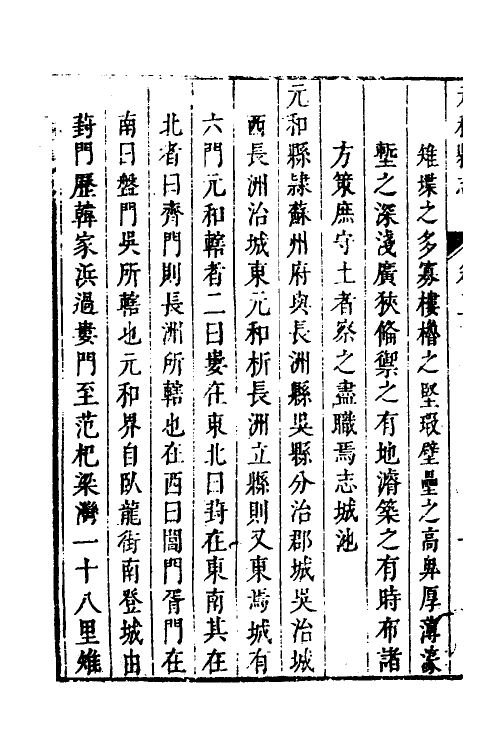 雉堞之多寡樓櫓之堅瑕壁壘之高卑厚薄濠
塹之深淺廣狹俻禦之有地濬築之有時布諸
方策庶守土者察之盡職焉志城池
元和縣隷蘇州府與長洲縣吳縣分治郡城吳治城
西長洲治城東元和析長洲立縣則又東焉城有
六門元和轄者二曰婁在東北曰葑在東南其在
北者曰齊門則長洲所轄也在西曰閶門胥門在
南曰盤門吳所轄也元和界自臥龍街南登城由
葑門歷韓家浜過婁門至范杞梁灣一十八里雉